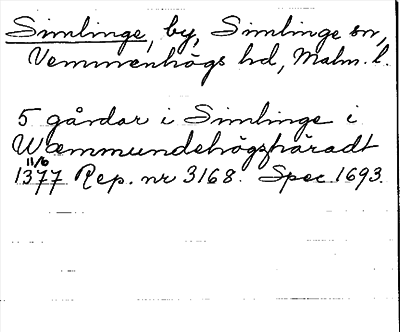 Simlinge, by, Simlinge sn,
Vemmenhögs hd, Malm. l.
5 gårdar i Simlinge i
Wæmmundehögshäradt
11/6
1377 Rep. nr 3168. Spec. 1693.